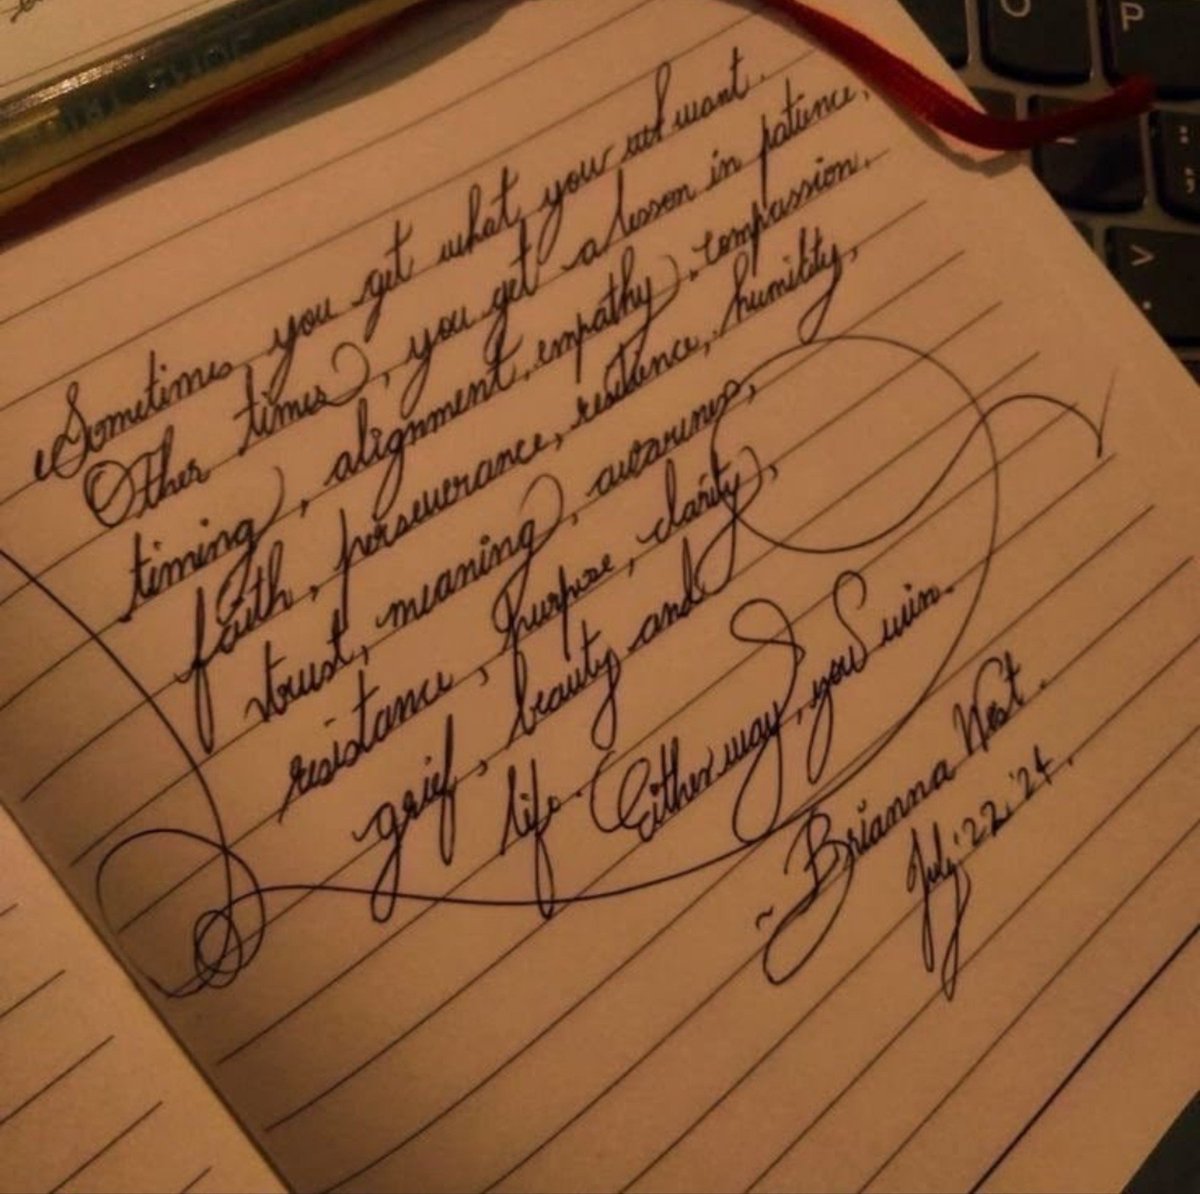 Sometimes, you get what you want.
Other times, you get a lesson in patience,
timing, alignment, empathy, compassion.
faith, perseverance, resilience, humility,
trust, meaning, awareness,
resistance, purpose, clarity,
grief, beauty and
life. Either way, you win.
~ Brianna West.
July 22, '24.
O
P
>
.